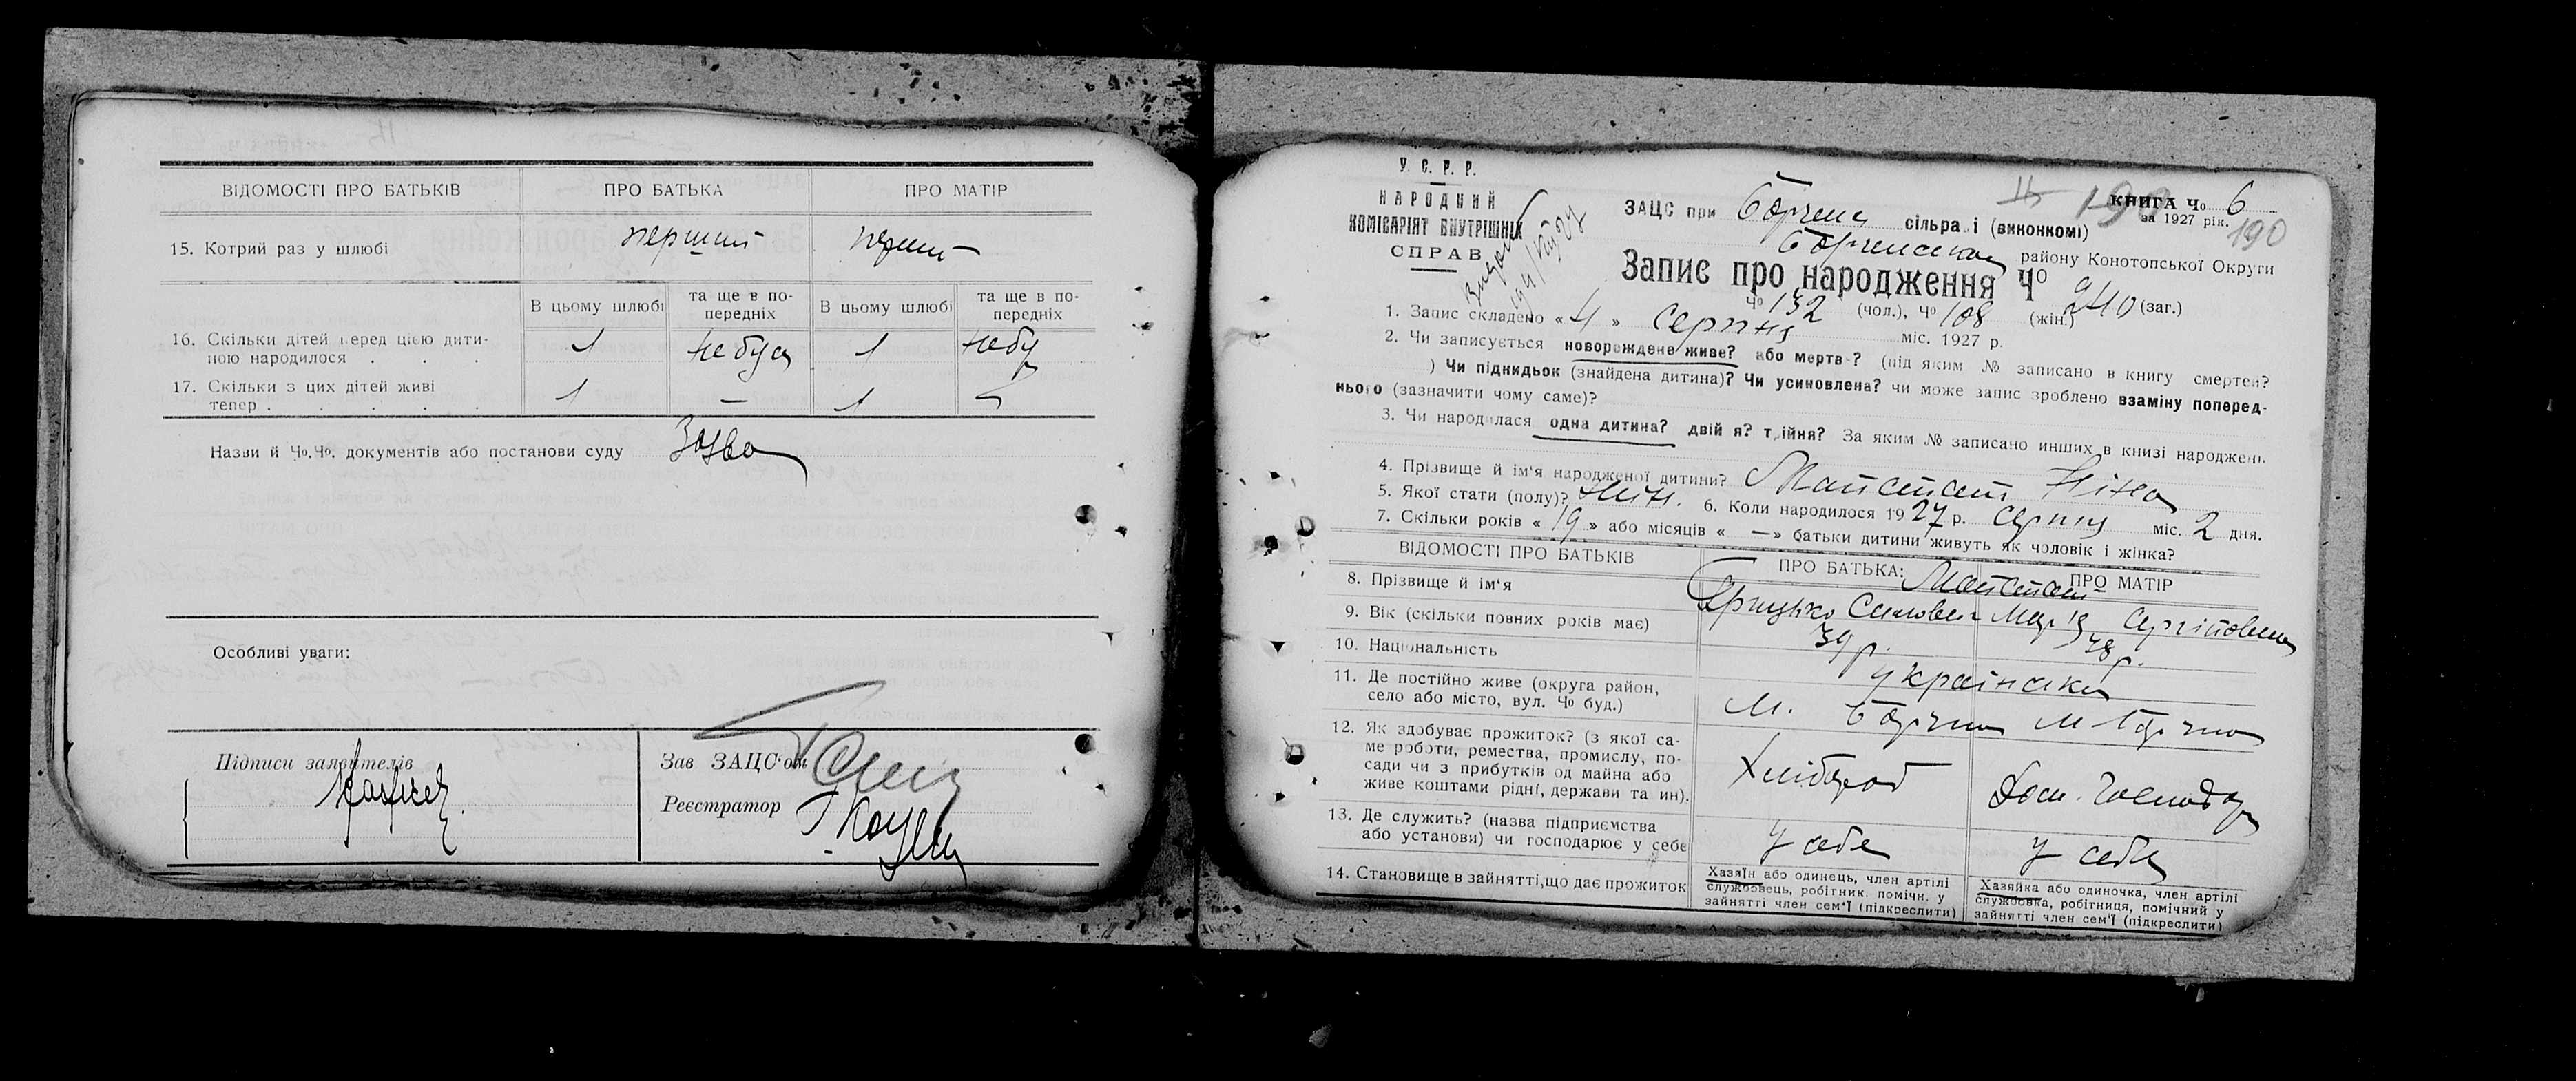 ВІДОМОСТІ ПРО БАТЬКІВ ПРО БАТЬКА ПРО МАТІР
15. Котрий раз у шлюбі первший первш
В цьому шлюбі та ще в по- передніх В цьому шлюбі та ще в по- передніх
16. Скільки дітей перед цією дити-
ною народилося . . . 1 не було 1 не бу
17. Скільки з цих дітей живі
тепер . . . . . 1 — 1 —
Назви й Чо.Чо. документів або постанови суду Заява
Особливі уваги:
Підписи заявителів
Зав ЗАЦС'ом
Реєстратор
У. С. Р. Р.
НАРОДНИЙ
КОМІСАРІЯТ ВНУТРІШНІХ
СПРАВ
190 КНИГА Чо 6
за 1927 рік.
190
ЗАЦС при Борзнян сільраді (виконкомі)
Борзнянськ району Конотопської Округи
Запис про народження Чо 240 (заг.)
Чо 132 (чол.), Чо 108 (жін.)
1. Запис складено « 4 » серпня міс. 1927 р.
2. Чи записується новорождене живе? або мертве? (під яким № записано в книгу смертей?
) Чи піднидьок (знайдена дитина)? Чи усиновлена? чи може запис зроблено взаміну поперед-
нього (зазначити чому саме)?
3. Чи народилася одна дитина? двійня? трійня? За яким № записано инших в книзі народжень
4. Прізвище й ім'я народженої дитини? Ніна
5. Якої стати (полу)? жін. 6. Коли народилося 1927 р. серпня міс. 2 дня.
7. Скільки років « 19 » або місяців « — » батьки дитини живуть як чоловік і жінка?
ВІДОМОСТІ ПРО БАТЬКІВ ПРО БАТЬКА: ПРО МАТІР
8. Прізвище й ім'я Грицько Марія Сергіївна
9. Вік (скільки повних років має) 39 р. 38 р.
10. Національність українськ
11. Де постійно живе (округа район,
село або місто, вул. Чо буд.) м. Борзна м Борзна
12. Як здобуває прожиток? (з якої са-
ме роботи, ремества, промислу, по-
сади чи з прибутків од майна або
живе коштами рідні, держави та ин). Хлібороб Дом. господар
13. Де служить? (назва підприємства
або установи) чи господарює у себе у себе у себе
14. Становище в зайнятті, що дає прожиток
Хазяїн або одинець, член артілі
службовець, робітник. помічн. у
зайнятті член сем'ї (підкреслити)
Хазяйка або одиночка, член артілі
службовка, робітниця, помічний у
зайнятті член сем'ї (підкреслити)